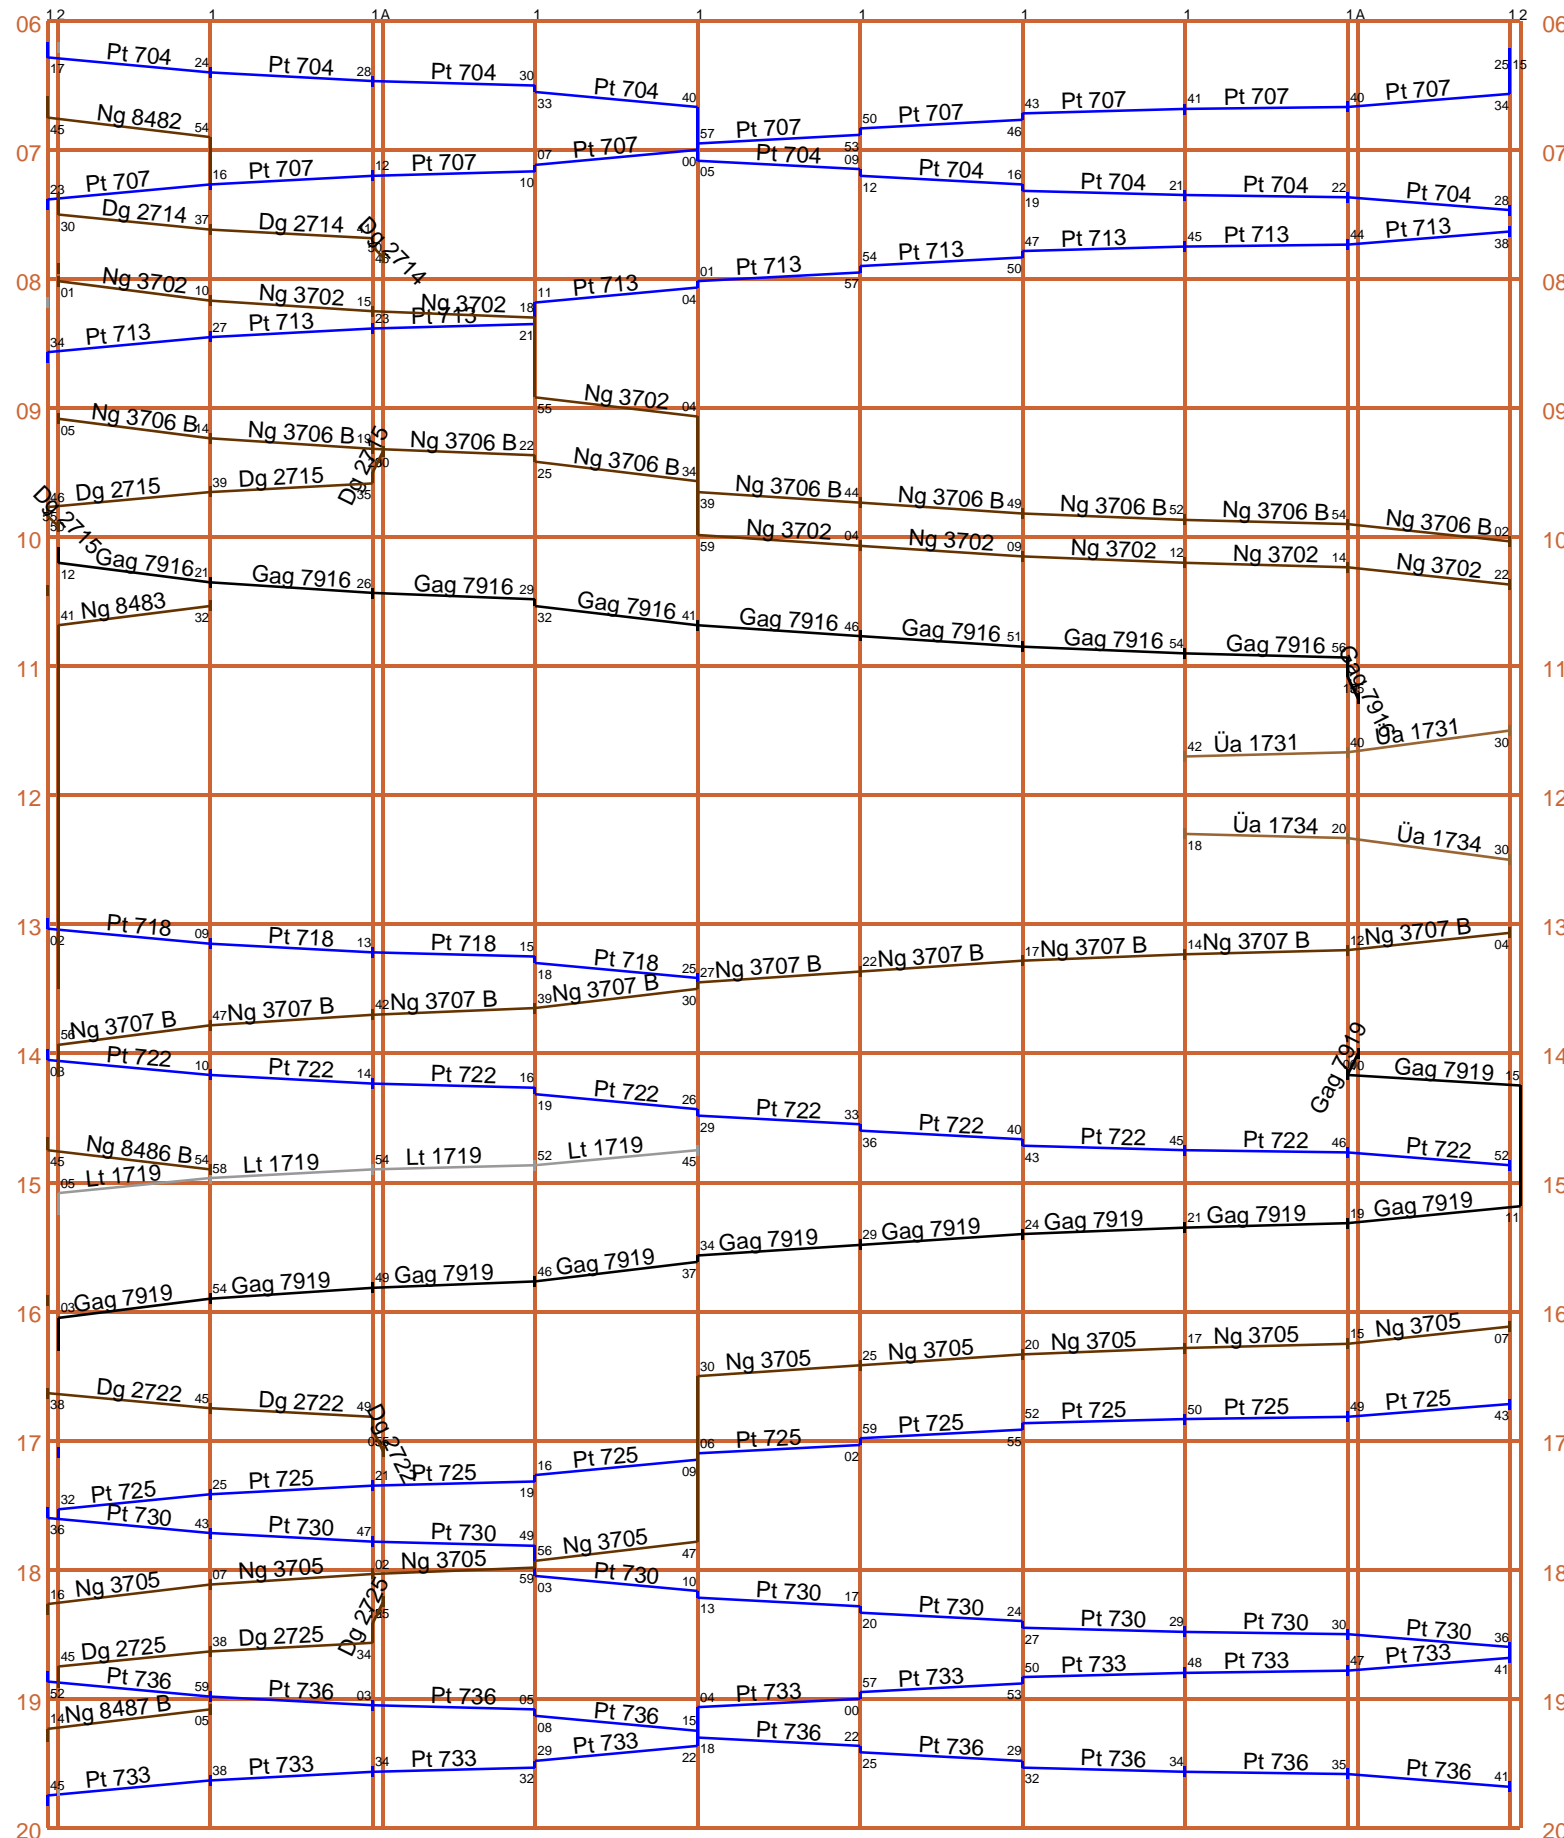 1 2 1 1 A 1 1 1 1 1 1 A 1 2
06 06
Pt 704 24 Pt 704 28 Pt 704 30 Pt 704 40
17 33
50 Pt 707 43 Pt 707 41 Pt 707 40 Pt 707 25 15
57 Pt 707 53 46 34
Ng 8482 54
45
07 07
23 Pt 707 16 Pt 707 12 Pt 707 07 Pt 707 00
10
05 Pt 704 09 Pt 704 16 Pt 704 21 Pt 704 22 Pt 704 28
12 19
30 Dg 2714 37 Dg 2714 41 Dg 2714
45
01 Pt 713 54 Pt 713 47 Pt 713 45 Pt 713 44 Pt 713 38
57 50
08 08
01 Ng 3702 10 Ng 3702 15 Ng 3702 18
34 Pt 713 27 Pt 713 23 Pt 713 21 11 Pt 713 04
09 09
55 Ng 3702 04
05 Ng 3706 B 14 Ng 3706 B 19 Ng 3706 B 22 Ng 3706 B 34
25
39 Ng 3706 B 44 Ng 3706 B 49 Ng 3706 B 52 Ng 3706 B 54 Ng 3706 B 02
46 Dg 2715 39 Dg 2715 35 Dg 2715
Dg 2715
10 10
59 Ng 3702 04 Ng 3702 09 Ng 3702 12 Ng 3702 14 Ng 3702 22
12 Gag 7916 21 Gag 7916 26 Gag 7916 29 Gag 7916 41 Gag 7916 46 Gag 7916 51 Gag 7916 54 Gag 7916 56 Gag 7916
32
41 Ng 8483 32
11 11
42 Üa 1731 40 Üa 1731 30
12 12
18 Üa 1734 20 Üa 1734 30
13 13
02 Pt 718 09 Pt 718 13 Pt 718 15 Pt 718 25
18
27 Ng 3707 B 22 Ng 3707 B 17 Ng 3707 B 14 Ng 3707 B 12 Ng 3707 B 04
56 Ng 3707 B 47 Ng 3707 B 42 Ng 3707 B 39 Ng 3707 B 30
14 14
03 Pt 722 10 Pt 722 14 Pt 722 16 Pt 722 26 Pt 722 33 Pt 722 40 Pt 722 45 Pt 722 46 Pt 722 52
19 29 36 43
Gag 7919 Gag 7919 15
45 Ng 8486 B 54
05 Lt 1719 58 Lt 1719 54 Lt 1719 52 Lt 1719 45
15 15
03 Gag 7919 54 Gag 7919 49 Gag 7919 46 Gag 7919 37 34 Gag 7919 29 Gag 7919 24 Gag 7919 21 Gag 7919 19 Gag 7919 11
16 16
30 Ng 3705 25 Ng 3705 20 Ng 3705 17 Ng 3705 15 Ng 3705 07
38 Dg 2722 45 Dg 2722 49 Dg 2722
17 17
06 Pt 725 59 Pt 725 52 Pt 725 50 Pt 725 49 Pt 725 43
02 55
32 Pt 725 25 Pt 725 21 Pt 725 19 16 Pt 725 09
36 Pt 730 43 Pt 730 47 Pt 730 49
18 18
16 Ng 3705 07 Ng 3705 02 Ng 3705 59 56 Ng 3705 47
03 Pt 730 10 Pt 730 17 Pt 730 24 Pt 730 29 Pt 730 30 Pt 730 36
13 20 27
45 Dg 2725 38 Dg 2725 34 Dg 2725
04 Pt 733 57 Pt 733 50 Pt 733 48 Pt 733 47 Pt 733 41
00 53
52 Pt 736 59 Pt 736 03 Pt 736 05 Pt 736 15
08
19 19
14 Ng 8487 B 05
18 Pt 736 22 Pt 736 29 Pt 736 34 Pt 736 35 Pt 736 41
25 32
45 Pt 733 38 Pt 733 34 Pt 733 32 29 Pt 733 22
20 20